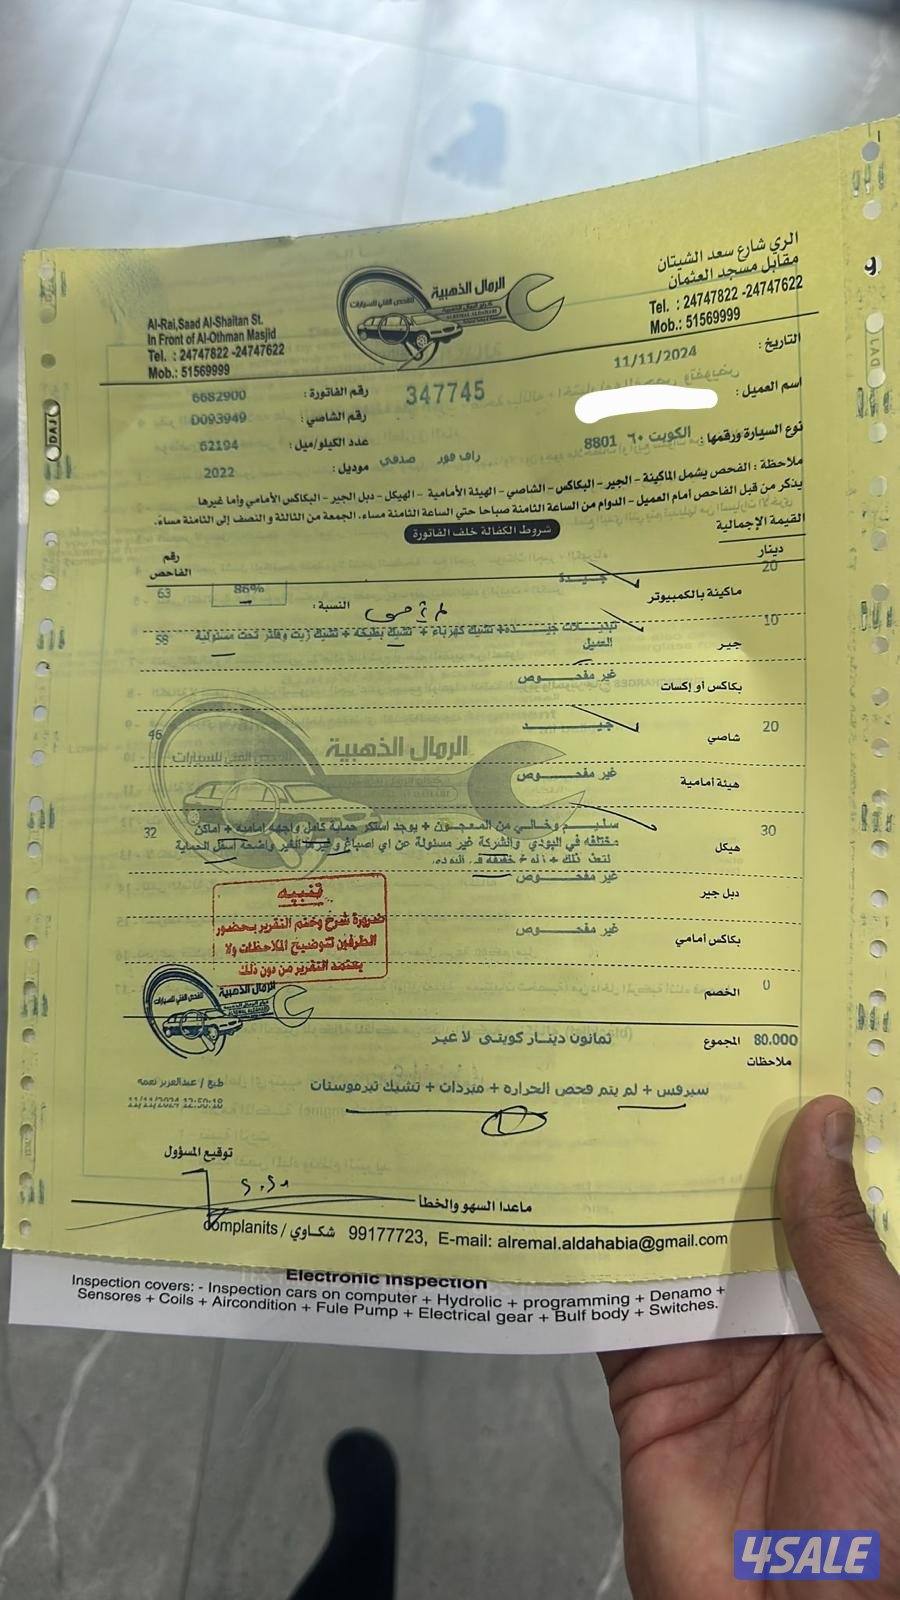 الري شارع سعد الشيتان
مقابل مسجد العثمان
Tel. : 24747822 -24747622
Mob.: 51569999
الرمال الذهبية
للفحص الفني للسيارات
Al-Rai,Saad Al-Shaitan St.
In Front of Al-Othman Masjid
Tel. : 24747822 -24747622
Mob.: 51569999
التاريخ : 11/11/2024
اسم العميل :
347745
رقم الفاتورة : 6682900
رقم الشاصي : D093949
نوع السيارة ورقمها : الكويت ٦٠ 8801
عدد الكيلو/ميل : 62194
راف فور صدفي
موديل : 2022
ملاحظة : الفحص يشمل الماكينة - الجير - البكاكس - الشاصي - الهيئة الأمامية - الهيكل - دبل الجير - البكاكس الأمامي وأما غيرها
يذكر من قبل الفاحص أمام العميل - الدوام من الساعة الثامنة صباحا حتي الساعة الثامنة مساء، الجمعة من الثالثة و النصف إلى الثامنة مساءً.
شروط الكفالة خلف الفاتورة
القيمة الإجمالية
دينار
رقم الفاحص
20 ماكينة بالكمبيوتر جيدة النسبة : 86% 63
10 جير تبديلات جيدة + تشيك كهرباء + تشيك بطيخة + تشيك زيت وفلتر تحت مسئولية 58
العميل
بكاكس أو إكسات غير مفحوص
20 شاصي جيد 46
هيئة أمامية غير مفحوص
الرمال الذهبية
للفحص الفني للسيارات
30 هيكل سليم وخالي من المعجون + يوجد استكر حماية كامل واجهه اماميه + اماكن 32
مختلفه في البودي والشركة غير مسئولة عن اي اصباغ وغيرها الغير واضحة اسفل الحماية
لتعذر ذلك + خفيفه في البودي
دبل جير غير مفحوص
بكاكس أمامي غير مفحوص
تنبيه
ضرورة شرح وختم التقرير بحضور
الطرفين لتوضيح الملاحظات ولا
يعتمد التقرير من دون ذلك
الرمال الذهبية
للفحص الفني للسيارات
0 الخصم
80.000 المجموع ثمانون دينار كويتي لا غير
ملاحظات
سيرفس + لم يتم فحص الحراره + مبردات + تشيك تيرموستات
طبع / عبدالعزيز نعمه
11/11/2024 12:50:18
توقيع المسؤول
ماعدا السهو والخطأ
complanits / شكاوي 99177723, E-mail: alremal.aldahabia@gmail.com
Electronic Inspection
Inspection covers: - Inspection cars on computer + Hydrolic + programming + Denamo +
Sensores + Coils + Aircondition + Fule Pump + Electrical gear + Bulf body + Switches.
4SALE